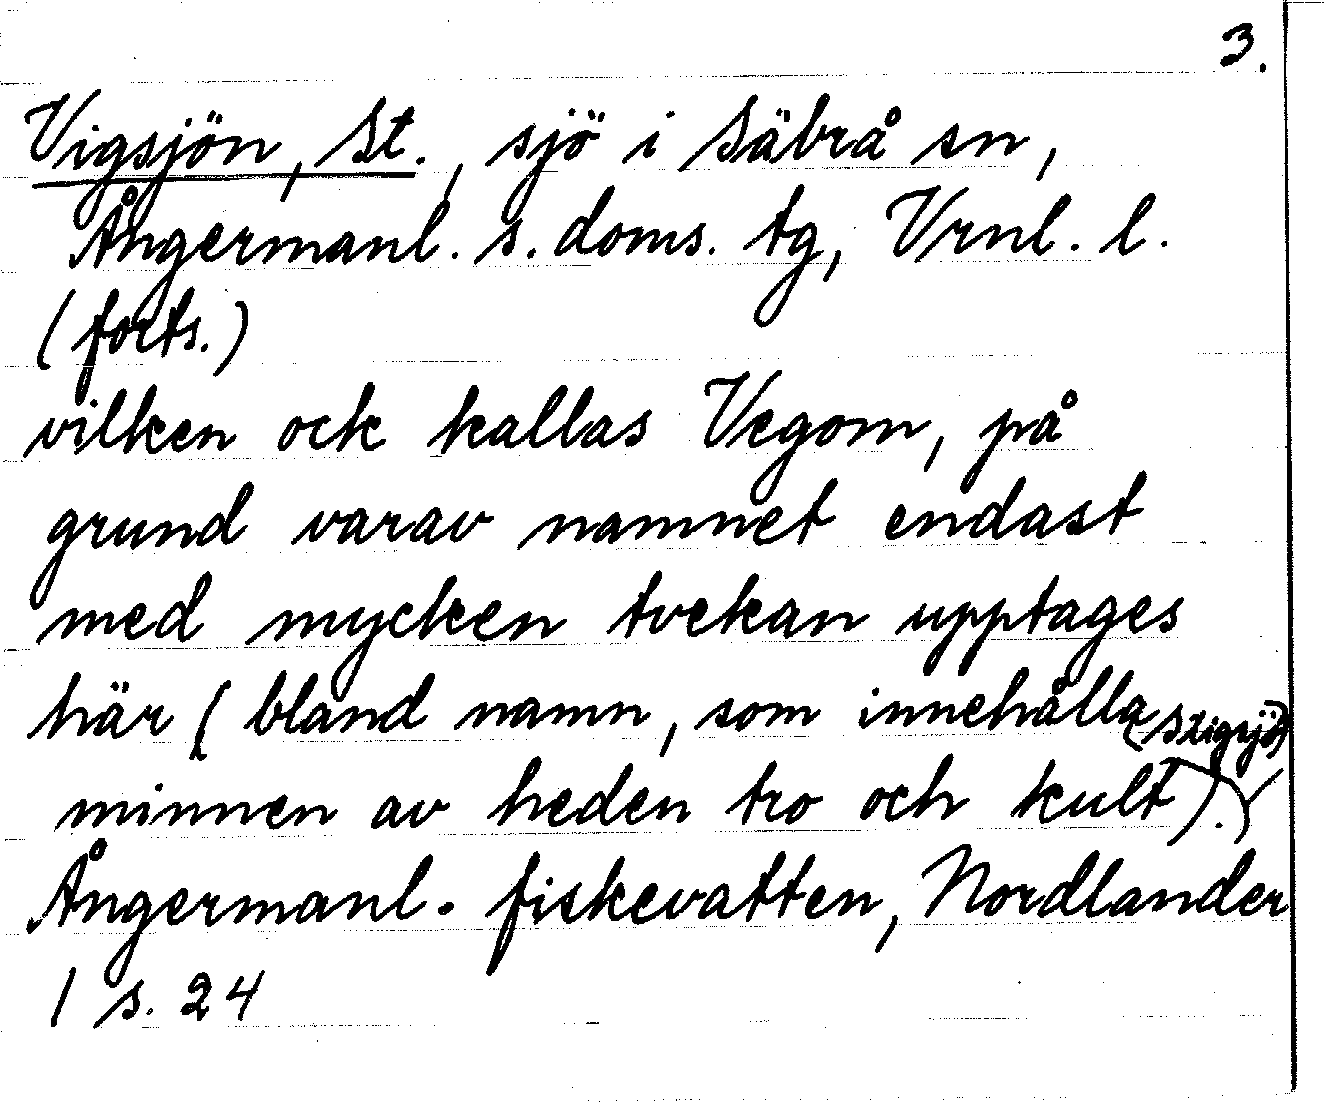 3.
Vigsjön, St., sjö i Säbrå sn,
Ångermanl. s. doms. tg, Vrnl. l.
(forts.)
vilken ock kallas Vegom, på
grund varav namnet endast
med mycken tvekan upptages
här (bland namn, som innehålla (Stigsjö)
minnen av heden tro och kult).
Ångermanl. fiskevatten, Nordlander
1 s. 24